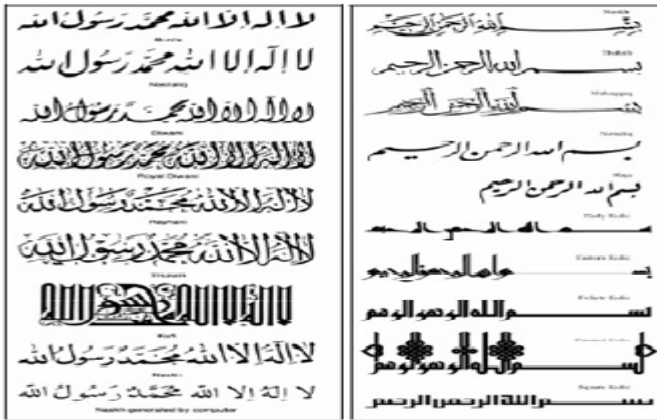 لا اله الا الله محمد رسول الله
لا اله الا الله محمد رسول الله
Nastaliq
لا اله الا الله محمد رسول الله
Diwani
لا اله الا الله محمد رسول الله
Royal Diwani
لا اله الا الله محمد رسول الله
Reyhani
لا اله الا الله محمد رسول الله
Thuluth
Kufi
لا اله الا الله محمد رسول الله
Naskh
لا اله الا الله محمد رسول الله
Naskh generated by computer
Naskh
بسم الله الرحمن الرحيم
Thuluth
بسم الله الرحمن الرحيم
Muhaqqaq
بسم الله الرحمن الرحيم
Nastaliq
بسم الله الرحمن الرحيم
بسم الله الرحمن الرحيم
Early Kufic
بسم الله الرحمن الرحيم
Eastern Kufic
بسم الله الرحمن الرحيم
بسم الله الرحمن الرحيم
بسم الله الرحمن الرحيم
Square Kufic
بسم الله الرحمن الرحيم